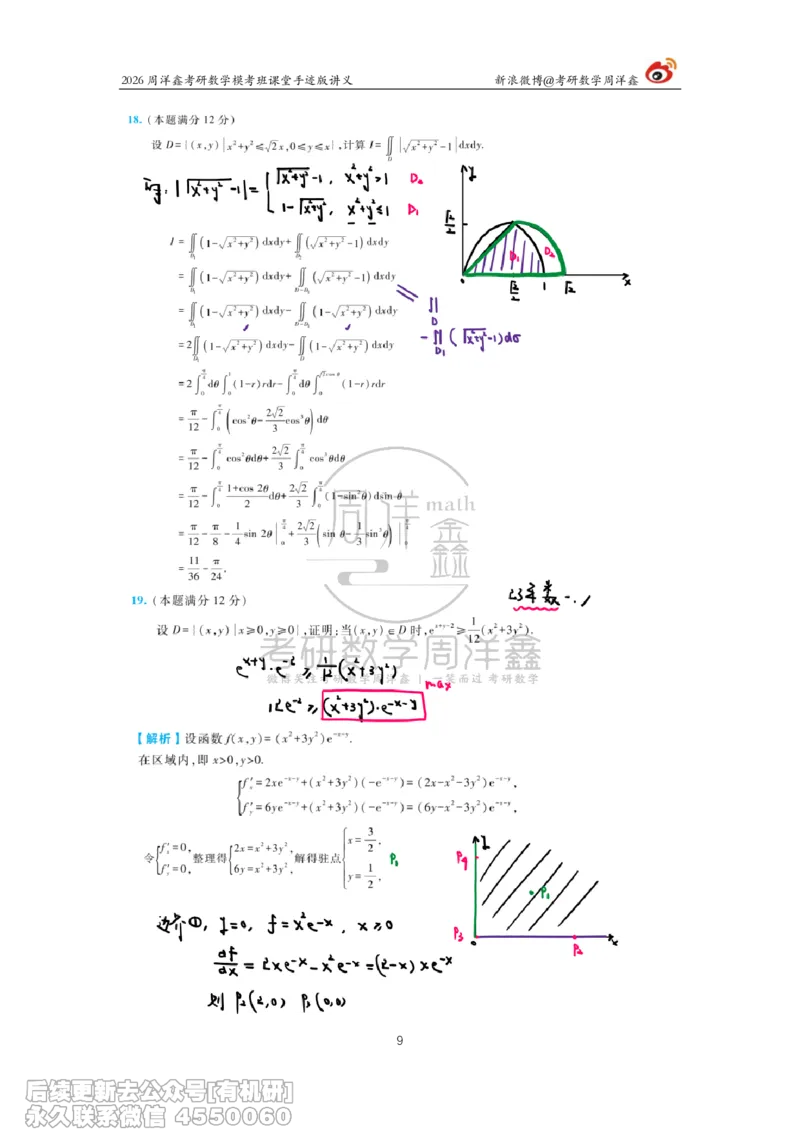 2026 周洋鑫考研数学模考班课堂手迹版讲义 新浪微博@考研数学周洋鑫
18. (本题满分 12 分)
设 D={(x,y)|x²+y²≤√2x,0≤y≤x},计算 I=∬_D |√(x²+y²)-1|dxdy.
|√(x²+y²)-1|= { √(x²+y²)-1, x²+y²>1 D₂
1-√(x²+y²), x²+y²≤1 D₁
y
√2/2
D₁ D₂
0 √2/2 1 √2 x
I=∬_D₁(1-√(x²+y²))dxdy+∬_D₂(√(x²+y²)-1)dxdy
=∬_D₁(1-√(x²+y²))dxdy+∬_{D-D₁}(√(x²+y²)-1)dxdy
=∬_D₁(1-√(x²+y²))dxdy-∬_{D-D₁}(1-√(x²+y²))dxdy
= ∬_D
-∬_D₁(√(x²+y²)-1)dσ
=2∬_D₁(1-√(x²+y²))dxdy-∬_D(1-√(x²+y²))dxdy
=2∫_0^{π/4}dθ∫_0^1(1-r)rdr-∫_0^{π/4}dθ∫_0^{√2cosθ}(1-r)rdr
=π/12-∫_0^{π/4}(cos²θ-2√2/3 cos³θ)dθ
=π/12-∫_0^{π/4}cos²θdθ+2√2/3∫_0^{π/4}cos³θdθ
=π/12-∫_0^{π/4}(1+cos 2θ)/2 dθ+2√2/3∫_0^{π/4}(1-sin²θ)dsin θ
=π/12-π/8-1/4 sin 2θ|_0^{π/4}+2√2/3(sin θ-1/3 sin³θ)|_0^{π/4}
=11/36-π/24.
周洋鑫 math
19. (本题满分 12 分)
23年数一.
设 D={(x,y)|x≥0,y≥0},证明:当(x,y)∈D 时,e^{x+y-2}≥1/12(x²+3y²).
考研数学周洋鑫
e^{x+y}·e^{-2}≥1/12(x²+3y²)
微博关注考研数学周洋鑫 | 一笑而过 考研数学
max
12e^{-2}≥(x²+3y²)·e^{-x-y}
【解析】设函数 f(x,y)=(x²+3y²)e^{-x-y}.
在区域内,即 x>0,y>0.
{ f'_x=2xe^{-x-y}+(x²+3y²)(-e^{-x-y})=(2x-x²-3y²)e^{-x-y},
f'_y=6ye^{-x-y}+(x²+3y²)(-e^{-x-y})=(6y-x²-3y²)e^{-x-y},
令{ f'_x=0, f'_y=0, 整理得{ 2x=x²+3y², 6y=x²+3y², 解得驻点{ x=3/2, y=1/2, P₁
y
P₄
P₁
P₃ 0 P₂ x
边界①, y=0, f=x²e^{-x}, x≥0
df/dx=2xe^{-x}-x²e^{-x}=(2-x)xe^{-x}
则 P₂(2,0) P₃(0,0)
9
后续更新去公众号[有机研]
永久联系微信 4550060